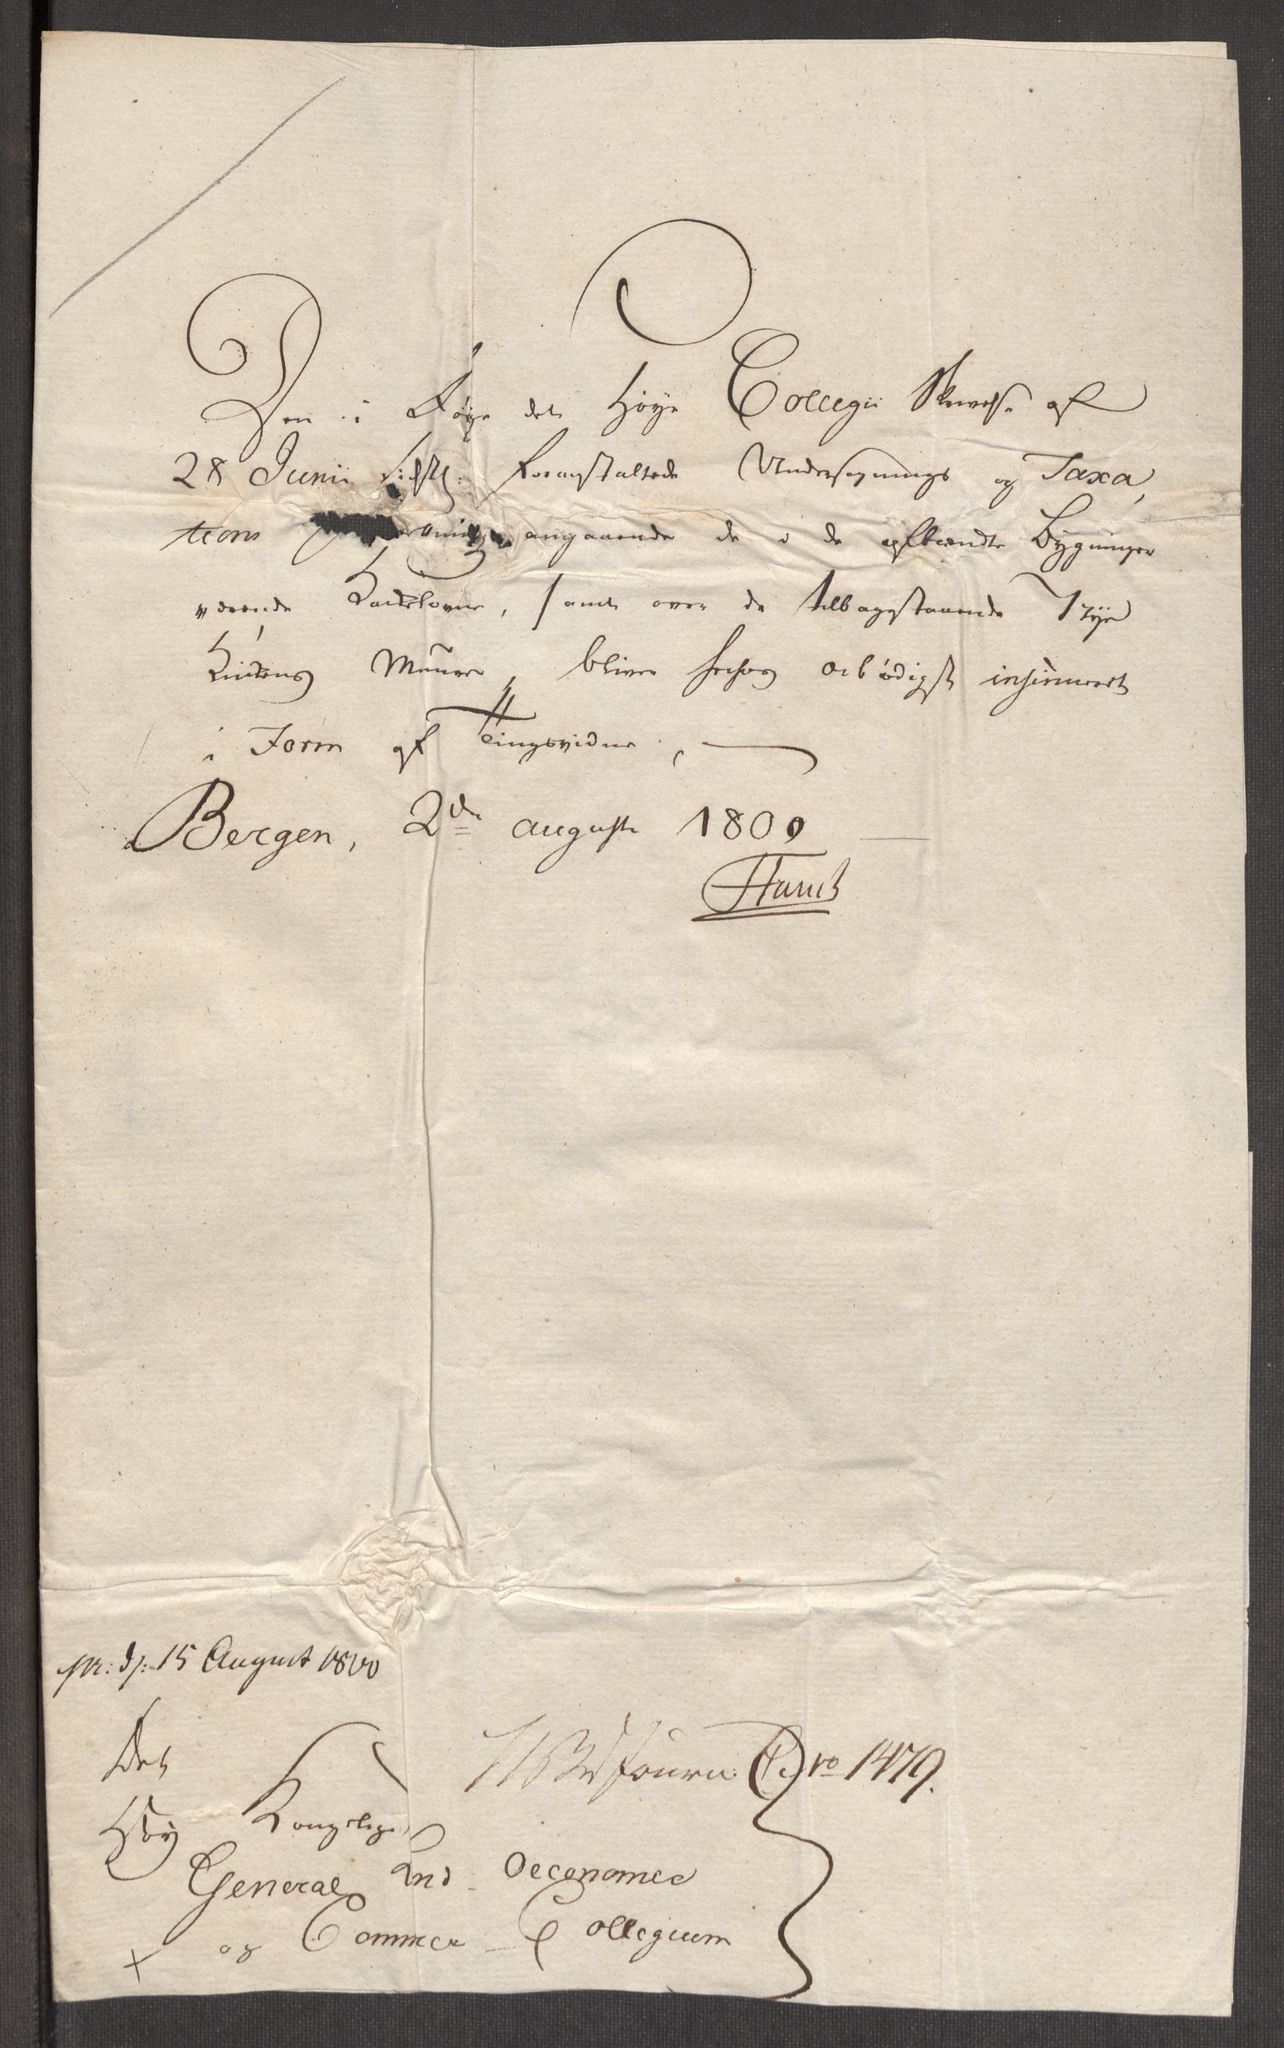 Den i Følge det Høye Collegii Skrivelse af
28 Junii sidstl: foranstaltede Undersøgnings og Taxa,
tions angaaende de i de afbrændte Bygninger
værende Kakelovne, samt over de tilbagestaaende Nye
Kirkens Muure, bliver herhos ærbødigst insinueret
i Form af Tingsvidne,
Bergen, 2de august 1800
pr: d: 15 August 1800
Det Journ No 1479.
Høy Kongelige
General Land Oeconomie
og Commerce Collegium